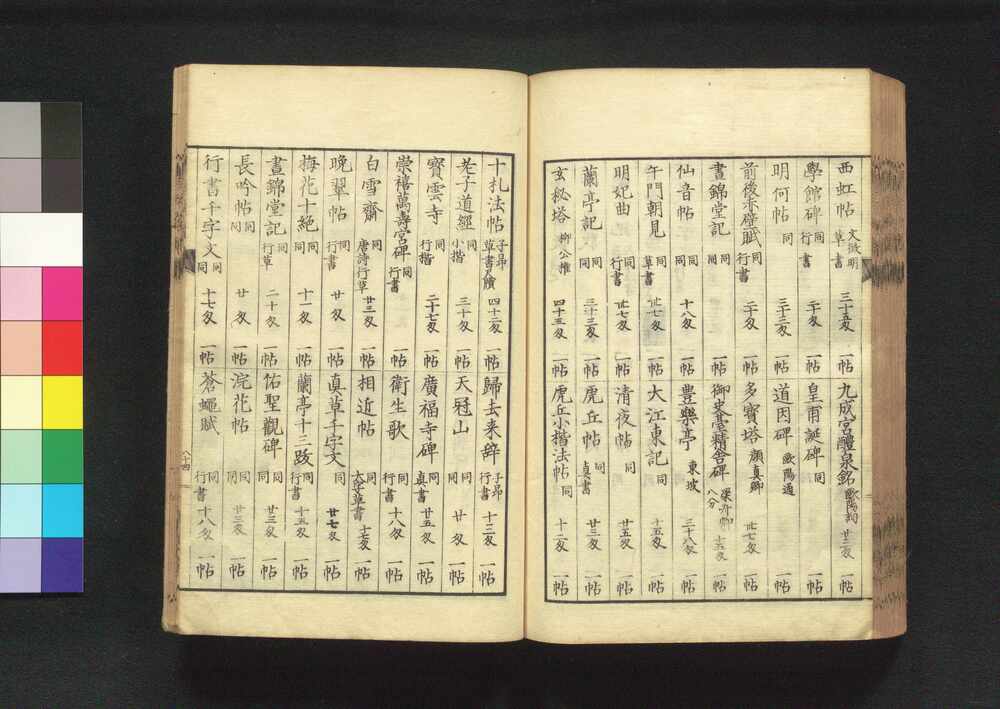 西虹帖 文徴明 草書 三十五匁 一帖 九成宮醴泉銘 歐陽詢 廿三匁 一帖
學館碑 同 行書 二十匁 一帖 皇甫誕碑 同 一帖
明何帖 同 三十三匁 一帖 道因碑 歐陽通 一帖
前後赤壁賦 同 行書 二十匁 一帖 多寶塔 顔真卿 廿七匁 一帖
晝錦堂記 同 同 一帖 御史臺精舎碑 梁昇卿 八分 十五匁 一帖
仙音帖 同 同 十八匁 一帖 豊樂亭 東坡 三十八匁 一帖
午門朝見 同 草書 廿七匁 一帖 大江東記 同 十五匁 一帖
明妃曲 同 行書 廿七匁 一帖 清夜帖 同 廿五匁 一帖
蘭亭記 同 同 三十三匁 一帖 虎丘帖 同 真書 廿三匁 一帖
玄秘塔 柳公権 四十三匁 一帖 虎丘小楷法帖 同 十二匁 一帖
十札法帖 子昂 草書尺牘 四十二匁 一帖 歸去来辞 子昂 行書 十三匁 一帖
老子道經 同 小楷 三十匁 一帖 天冠山 同 同 廿匁 一帖
寳雲寺 同 行楷 二十七匁 一帖 廣福寺碑 同 真書 廿五匁 一帖
崇禧萬壽宮碑 同 行書 一帖 衛生歌 同 行書 十八匁 一帖
白雪齋 同 唐詩行草 廿三匁 一帖 相近帖 同 大字草書 十七匁 一帖
晩翠帖 同 行書 廿匁 一帖 真草千字文 同 廿七匁 一帖
梅花十絶 同 同 十一匁 一帖 蘭亭十三跋 同 行書 十五匁 一帖
晝錦堂記 同 行草 二十匁 一帖 佑聖觀碑 同 同 廿三匁 一帖
長吟帖 同 同 廿匁 一帖 浣花帖 同 同 廿三匁 一帖
行書千字文 同 同 十七匁 一帖 蒼蠅賦 同 行書 十八匁 一帖
八十四